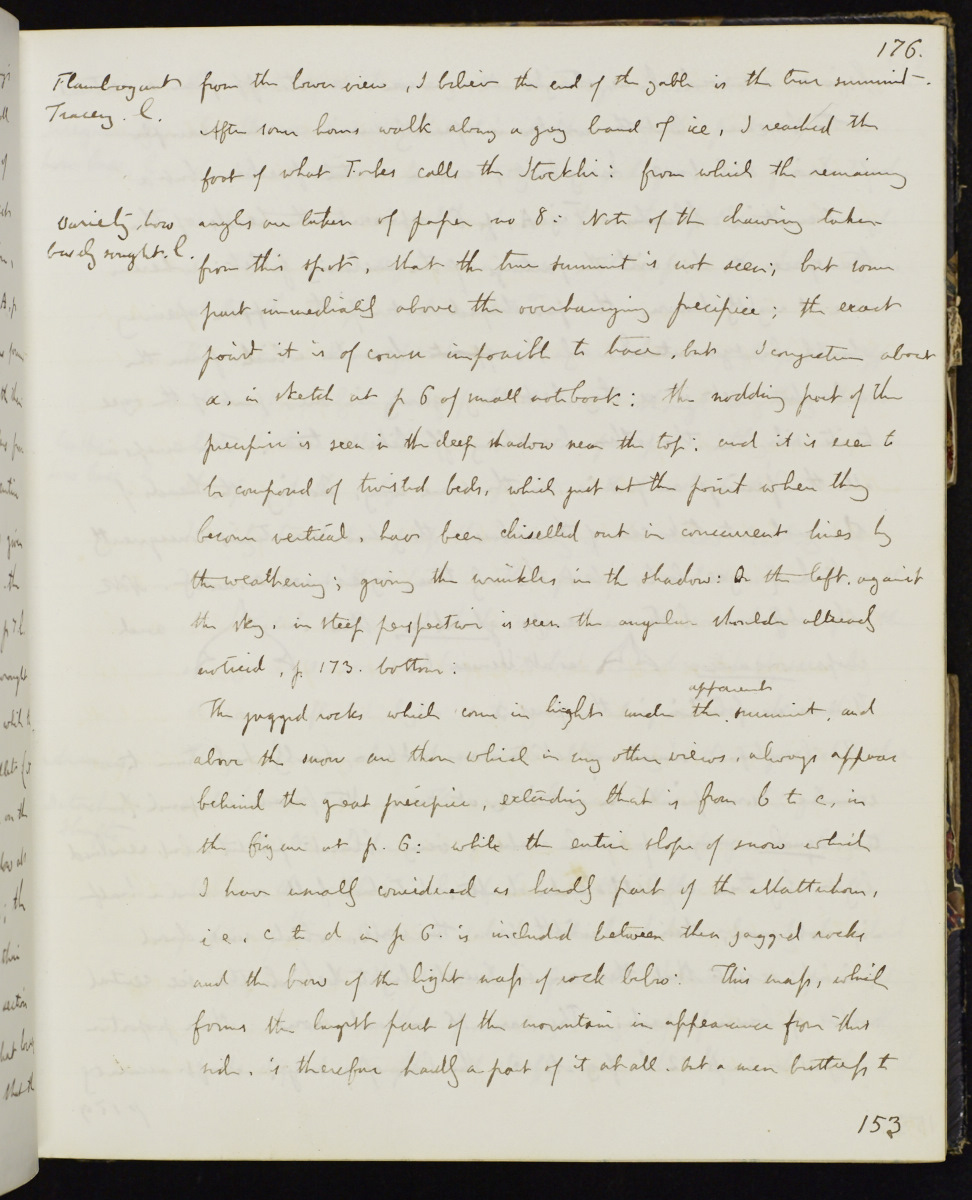 176.
Flamboyant
Tracery. l.
from the lower view, I believe the end of the gable is the true summit.
After some hours walk along a grey band of ice, I reached the
foot of what Forbes calls the Stockhi: from which the remaining
variety, how
basely sought. l.
angles are taken of paper no 8: Note of the drawing taken
from this spot, that the true summit is not seen; but some
part immediately above the overhanging precipice; the exact
point it is of course impossible to trace, but I conjecture about
a, in sketch at p 6 of small notebook: the nodding part of the
precipice is seen in the deep shadow near the top: and it is seen to
be composed of twisted beds, which just at the point when they
become vertical, have been chiselled out in concurrent lines by
the weathering; giving the wrinkles in the shadow: On the left, against
the sky, in steep perspective is seen the angular shoulder already
noticed, p. 173. bottom:
The jagged rocks which come in light under the apparent summit, and
above the snow are those which in my other views, always appear
behind the great precipice, extending that is from b to c, in
the figure at p. 6: while the entire slope of snow which
I have usually considered as hardly part of the Matterhorn,
i e. c to d in p 6. is included between these jagged rocks
and the brow of the light mass of rock below: This mass, which
forms the largest part of the mountain in appearance from this
side, is therefore hardly a part of it at all. but a mere buttress to
153